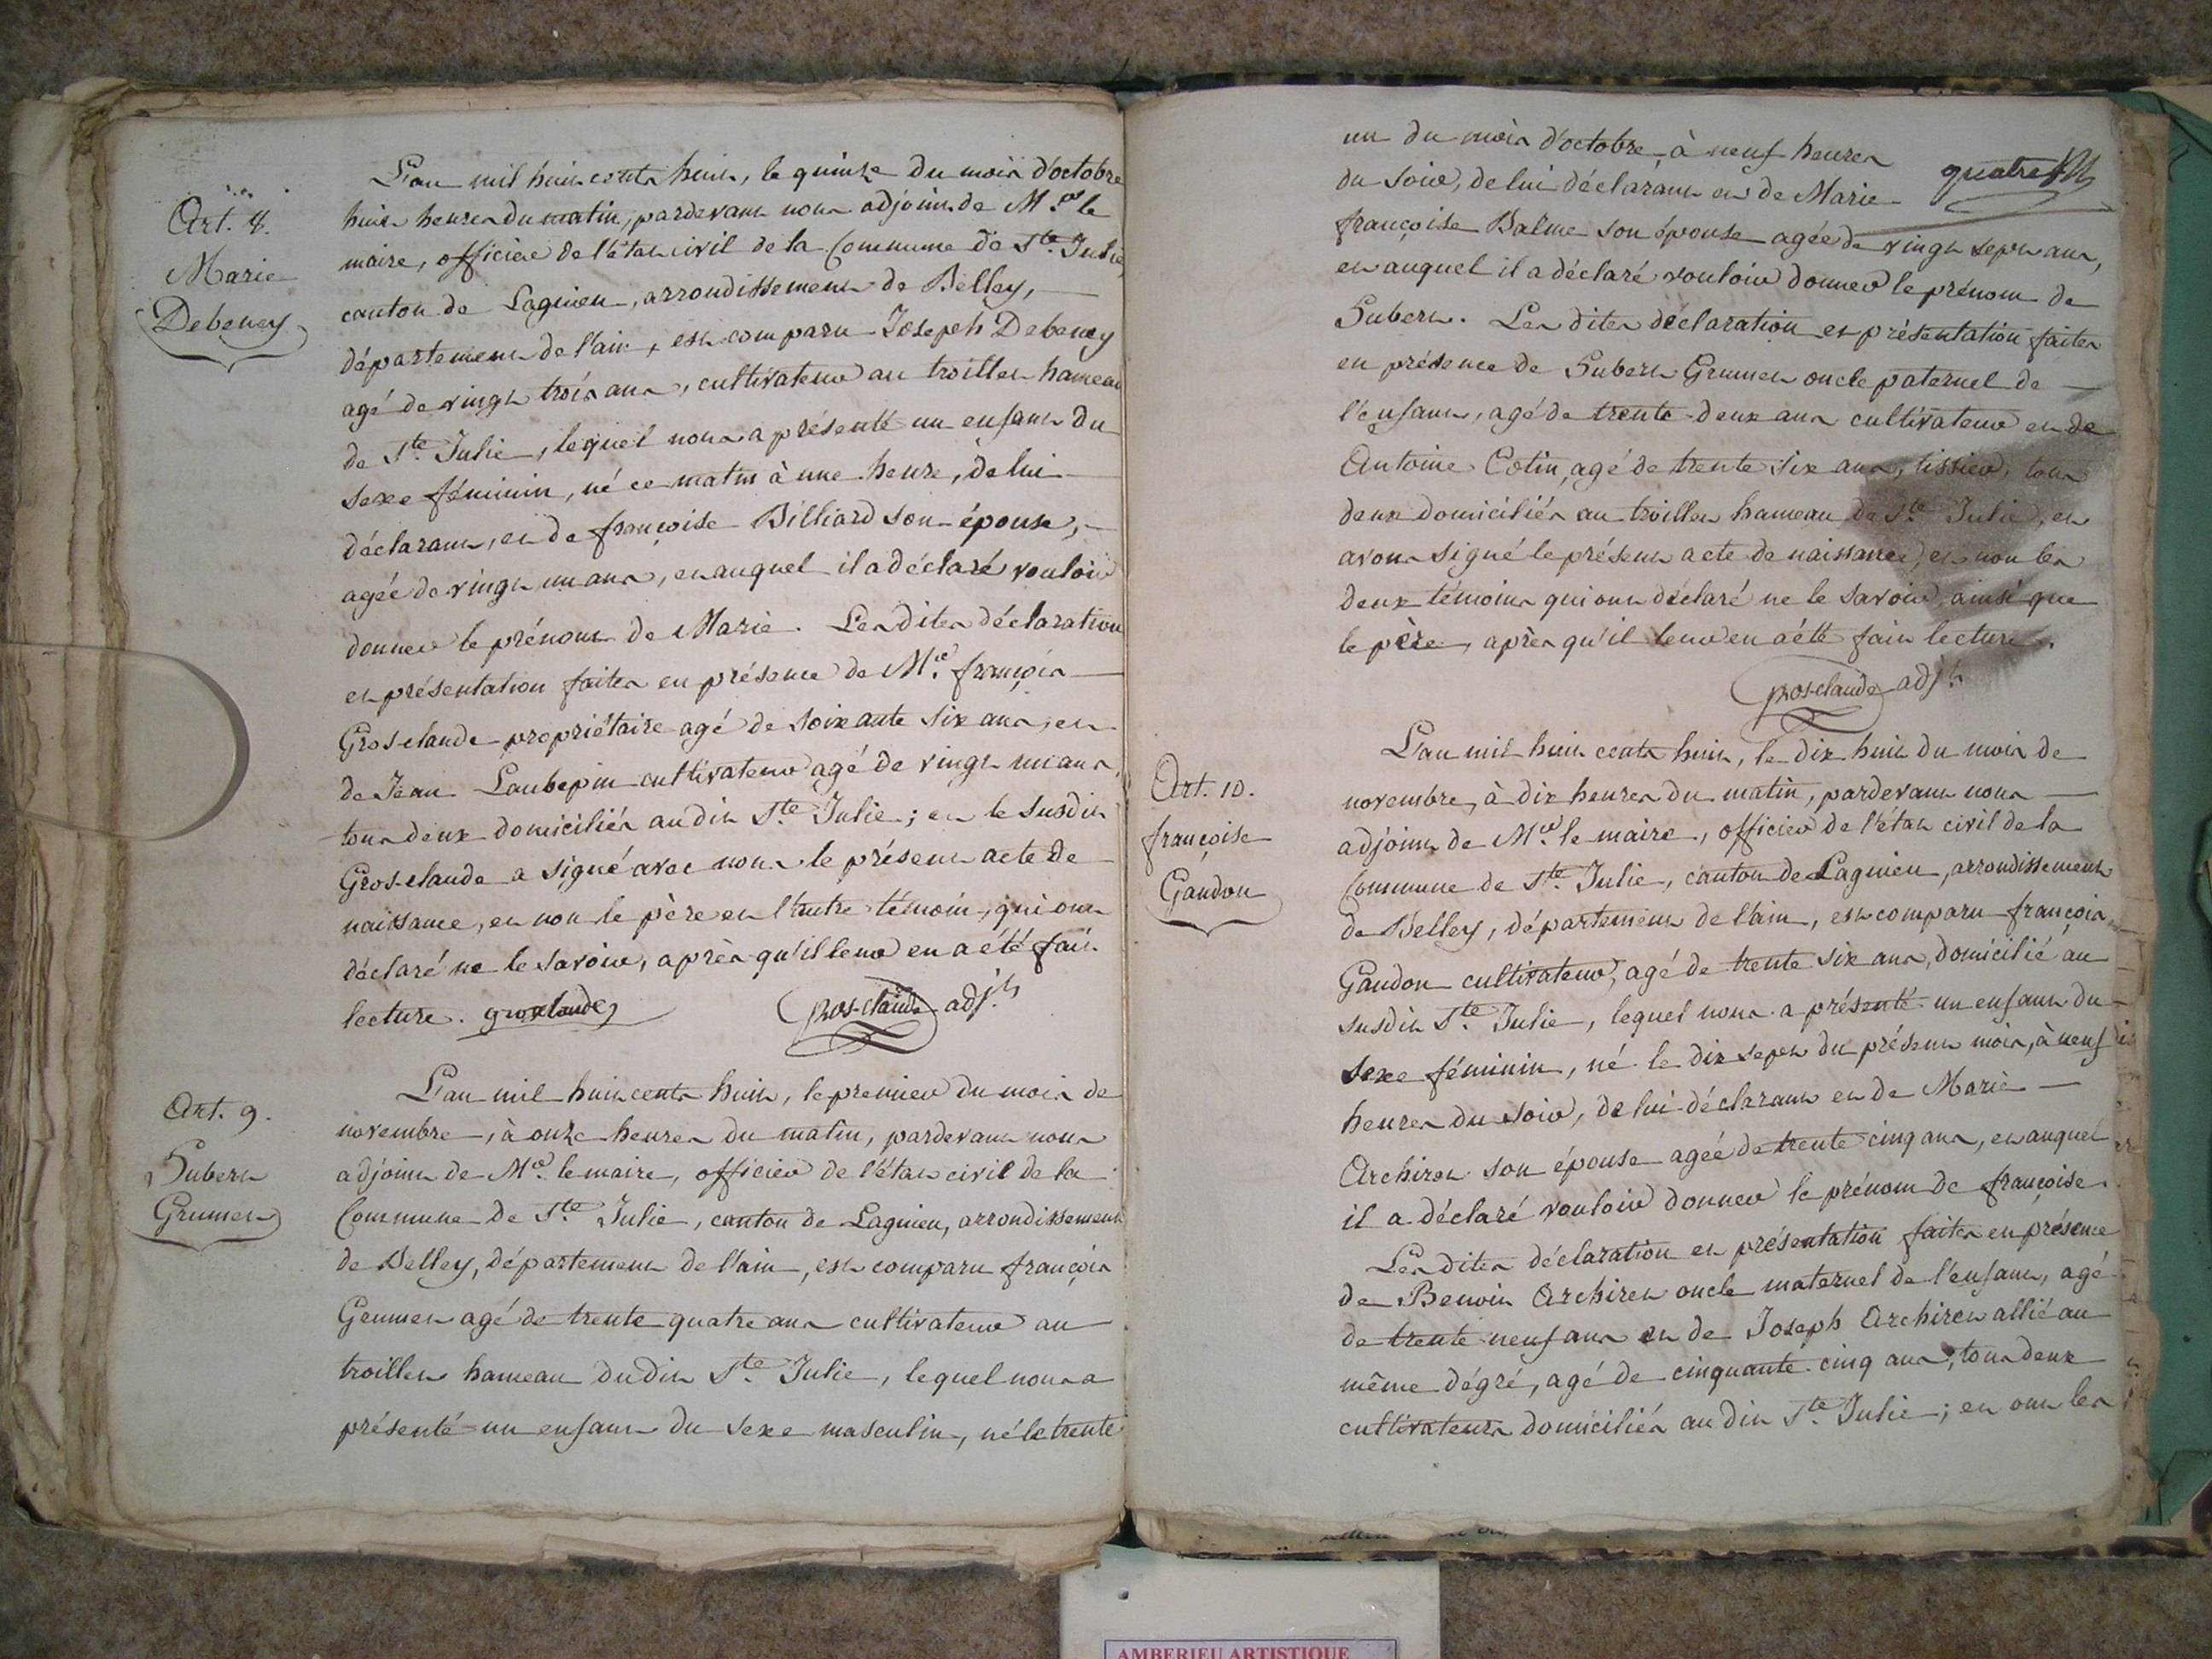 Art. 8.
Marie
Debeney
L'an mil huit cents huit, le quinze du mois d'octobre
huit heures du matin, pardevant nous adjoint de Mr. le
maire, officier de l'état civil de la Commune de Ste. Julie,
canton de Lagnieu, arrondissement de Belley,
département de l'ain, est comparu Joseph Debeney
agé de vingt trois ans, cultivateur au troillet hameau
de Ste. Julie, lequel nous a présenté un enfant du
sexe féminin, né ce matin à une heure, de lui
déclarant, et de françoise Billiard son épouse,
agée de vingt un ans, et auquel il a déclaré vouloir
donner le prénom de Marie. Les dites déclaration
et présentation faites en présence de Mr. françois
Gros-claude propriétaire agé de soixante six ans, et
de Jean Laubepin cultivateur agé de vingt un ans,
tous deux domiciliés au dit Ste. Julie; et le susdit
Gros-claude a signé avec nous le présent acte de
naissance, et non le père et l'autre témoin, qui ont
déclaré ne le savoir, après qu'il leur en a été fait
lecture. grosclaude Gros-claude adjt.
Art. 9.
Hubert
Grumet
L'an mil huit cents huit, le premier du mois de
novembre, à onze heures du matin, pardevant nous
adjoint de Mr. le maire, officier de l'état civil de la
Commune de Ste. Julie, canton de Lagnieu, arrondissement
de Belley, département de l'ain, est comparu françois
Grumet agé de trente quatre ans cultivateur au
troillet hameau du dit Ste. Julie, lequel nous a
présenté un enfant du sexe masculin, né le trente
quatre
un du mois d'octobre, à neuf heures
du soir, de lui déclarant et de Marie
françoise Balme son épouse agée de vingt sept ans,
et auquel il a déclaré vouloir donner le prénom de
Hubert. Les dites déclaration et présentation faites
en présence de Hubert Grumet oncle paternel de
l'enfant, agé de trente-deux ans cultivateur et de
Antoine Cotin, agé de trente six ans, tissier, tous
deux domiciliés au troillet hameau de Ste. Julie, et
avons signé le présent acte de naissance, et non les
deux témoins qui ont déclaré ne le savoir, ainsi que
le père, après qu'il leur en a été fait lecture.
Gros-claude adjt.
Art. 10.
françoise
Gaudon
L'an mil huit cents huit, le dix huit du mois de
novembre, à dix heures du matin, pardevant nous
adjoint de Mr. le maire, officier de l'état civil de la
Commune de Ste. Julie, canton de Lagnieu, arrondissement
de Belley, département de l'ain, est comparu françois
Gaudon cultivateur, agé de trente six ans, domicilié au
susdit Ste. Julie, lequel nous a présenté un enfant du
sexe féminin, né le dix sept du présent mois, à neuf
heures du soir, de lui déclarant et de Marie
Archiret son épouse agée de trente cinq ans, et auquel
il a déclaré vouloir donner le prénom de françoise.
Les dites déclaration et présentation faites en présence
de Benoit Archiret oncle maternel de l'enfant, agé
de trente neuf ans et de Joseph Archiret allié au
même dégré, agé de cinquante cinq ans, tous deux
cultivateurs domiciliés au dit Ste. Julie; et ont les
AMBERIEU ARTISTIQUE